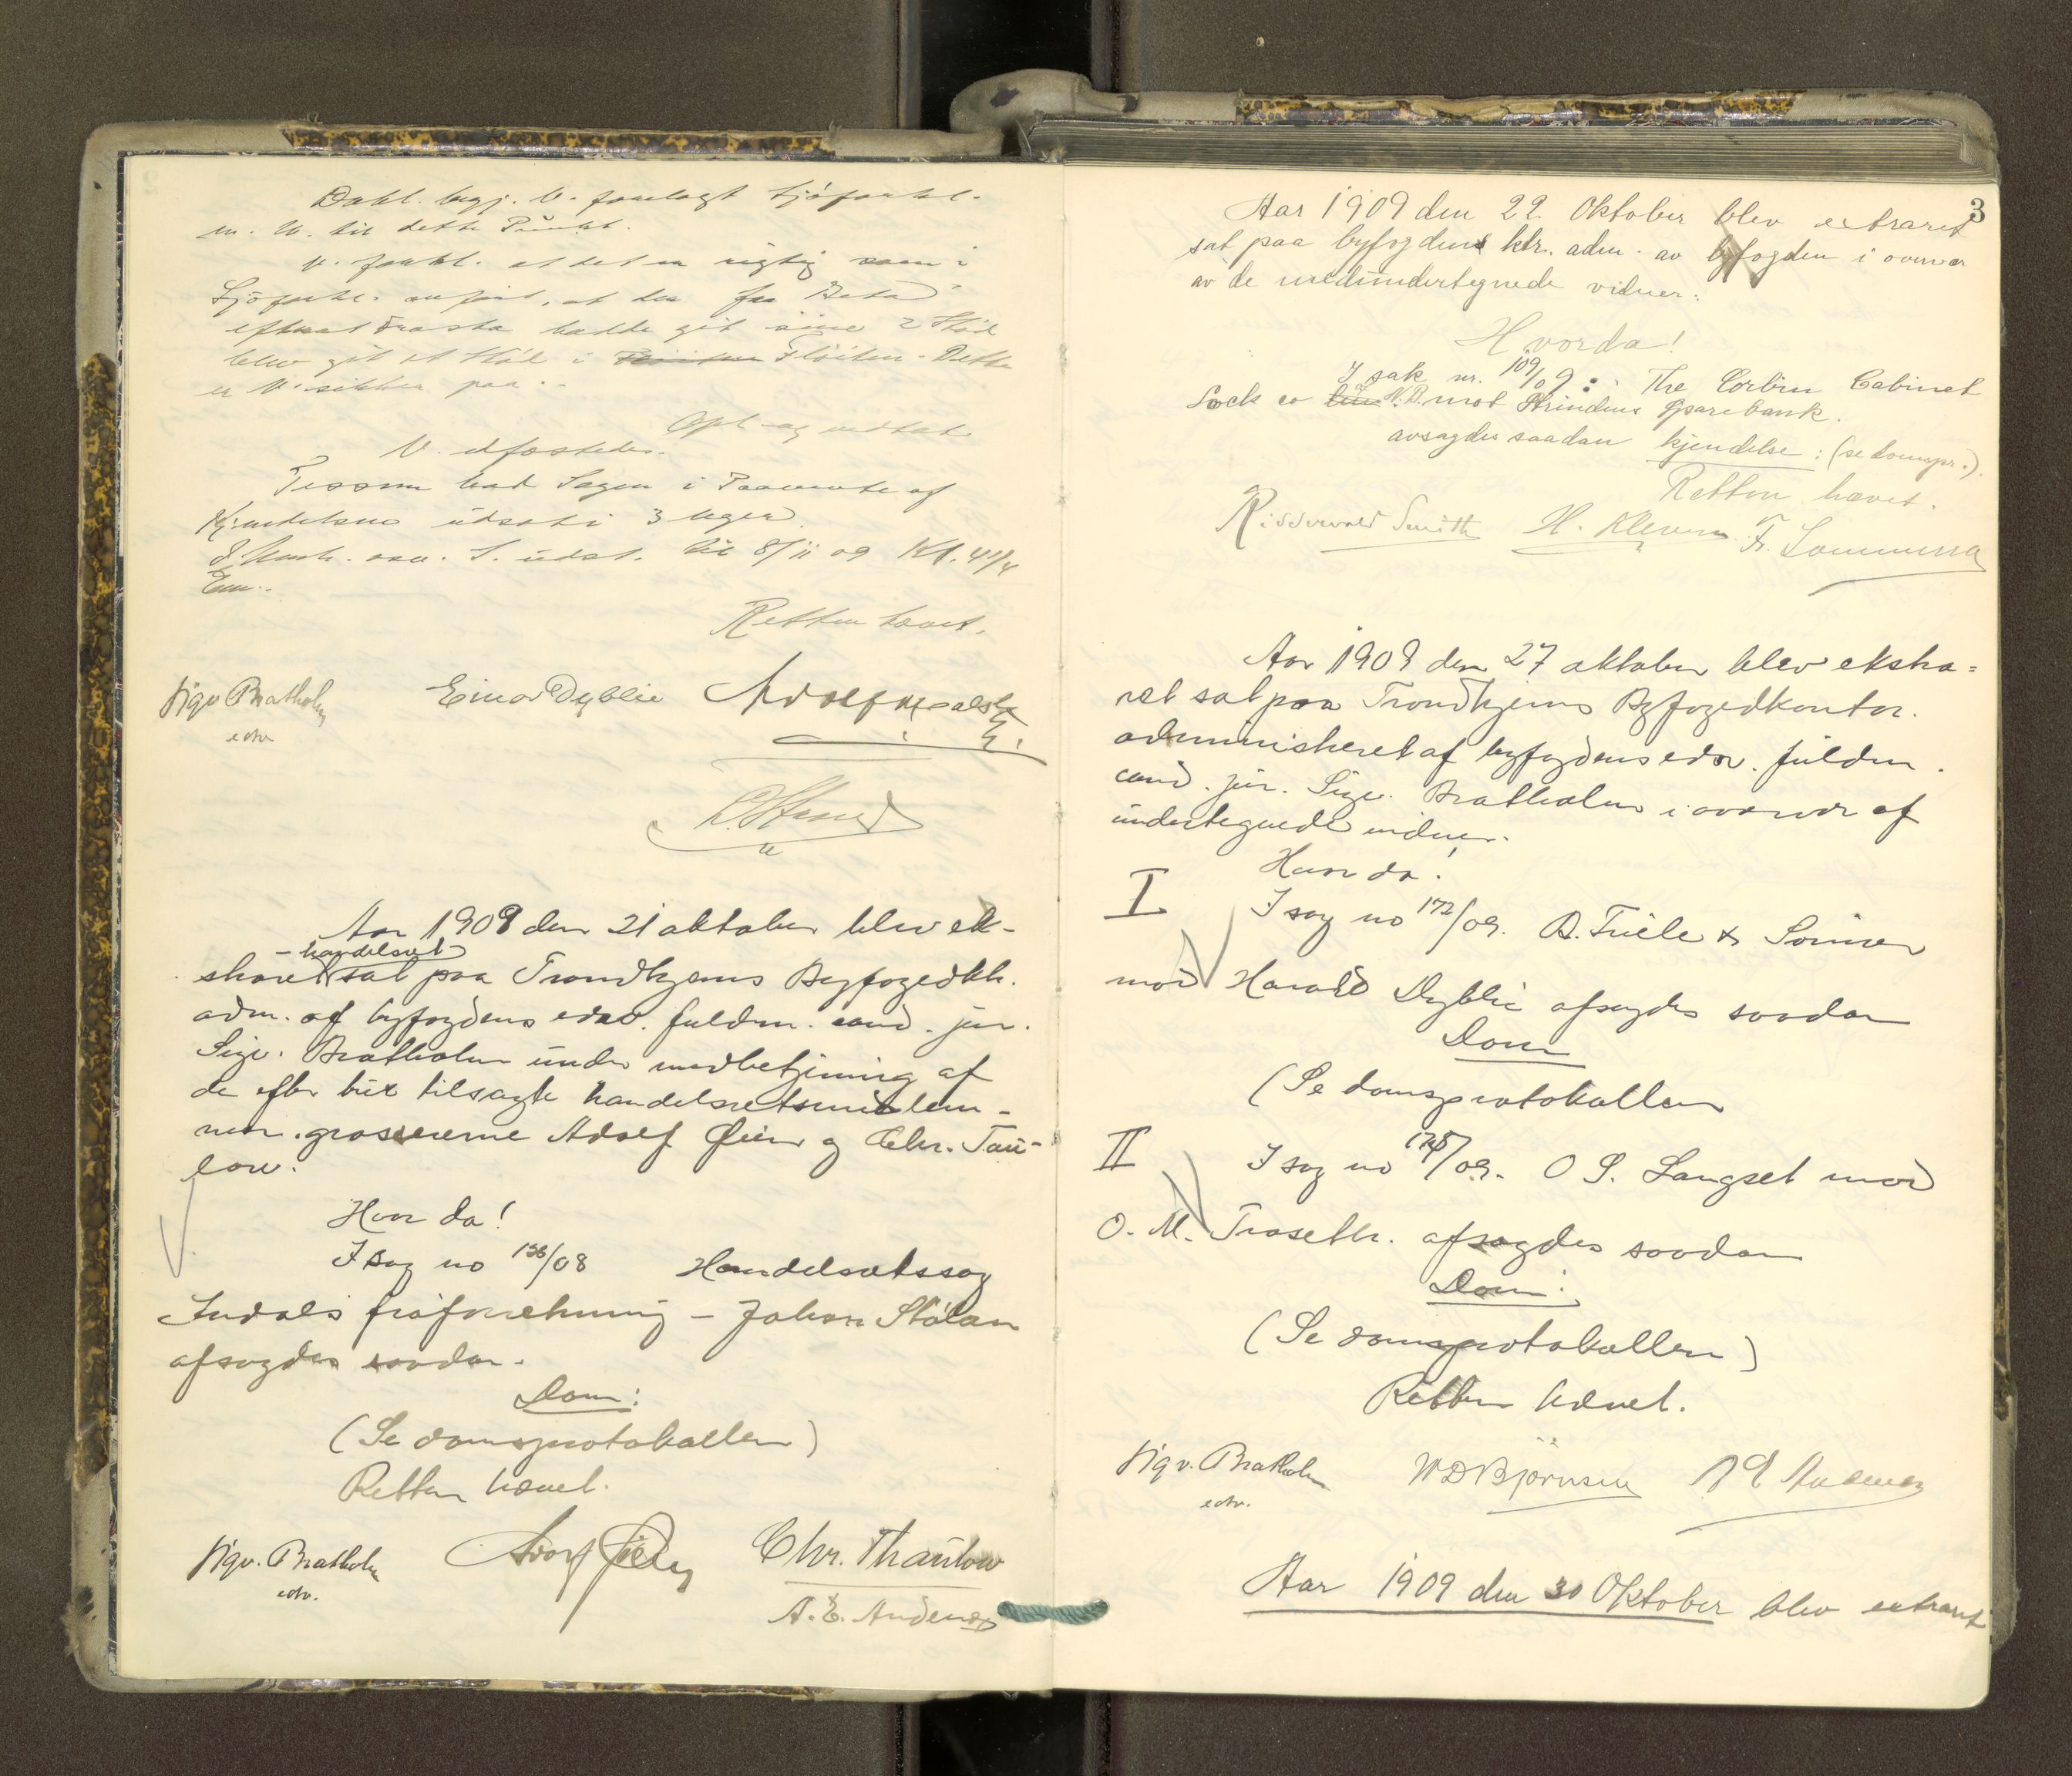 Dokl. begj. V. forelagt Sjöforkl.
m. V. til dette Punkt.
V. forkl. at det er rigtig som i
Sjöforkl. anfört, at der fra "Beta"
efterat Trasta hadde git sine 2 Stöd
blev git et Stöd i Flöiten. Dette
er V. sikker paa.
Opl. og vedtat
V. dfosteder.
Tessem bad Sagen i Paavente af
Kjendelsen udsat i 3 uger.
udst. til 8/11 09 Kl. 4 1/4
Em.
Retten hævet.
Sigv Bratholm
edv
Einar Dyblie
Aar 1909 den 21 oktober blev ek-
-handelsret
straret sat paa Trondhjems Byfogedkt.
adm. af byfogdens edsv. fuldm. cand. jur.
Sigv. Bratholm under medbetjening af
de efter tur tilsagte handelsretsmedlem-
mer. grossererne Adolf Øien og Chr. Tau-
low.
Hvor da!
I sag no 136/08 Handelsretssag
Indals træforretning – Johan Stölan
afsagdes saadan.
Dom:
(Se domsprotokollen)
Retten hævet.
Sigv. Bratholm
edv.
Adolf Øien
Chr. Thaulow
A. E. Andersen
3
Aar 1909 den 22 Oktober blev extraret
sat paa byfogdens ktr. adm. av byfogden i overvær
av de medundertegnede vidner:
Hvorda!
I sak nr. 109/09: The Corbin Cabinet
Lock co mot Strindens Sparebank.
avsagdes saadan kjendelse: (se domspr.).
Retten hævet.
Ridderwold Smith H. Klevens Fr.
Aar 1909 den 27 oktober blev ekstra=
ret sat paa Trondhjems Byfogedkontor.
administreret af byfogdens edsv. fuldm.
cand. jur. Sigv. Bratholm i overvær af
undertegnede vidner.
Hvor da!
I I sag no 172/09. B. Friele & Sönner
mod Harald Dyblie afsagdes saadan
Dom
(Se domsprotokollen
II I sag no /09. O S. Langset mod
O. M. Trosetth. afsagdes saadan
Dom:
(Se domsprotokollen)
Retten hævet.
Sigv. Bratholm
edv.
W D Bjørnsen A E Andersen
Aar 1909 den 30 Oktober blev extraret